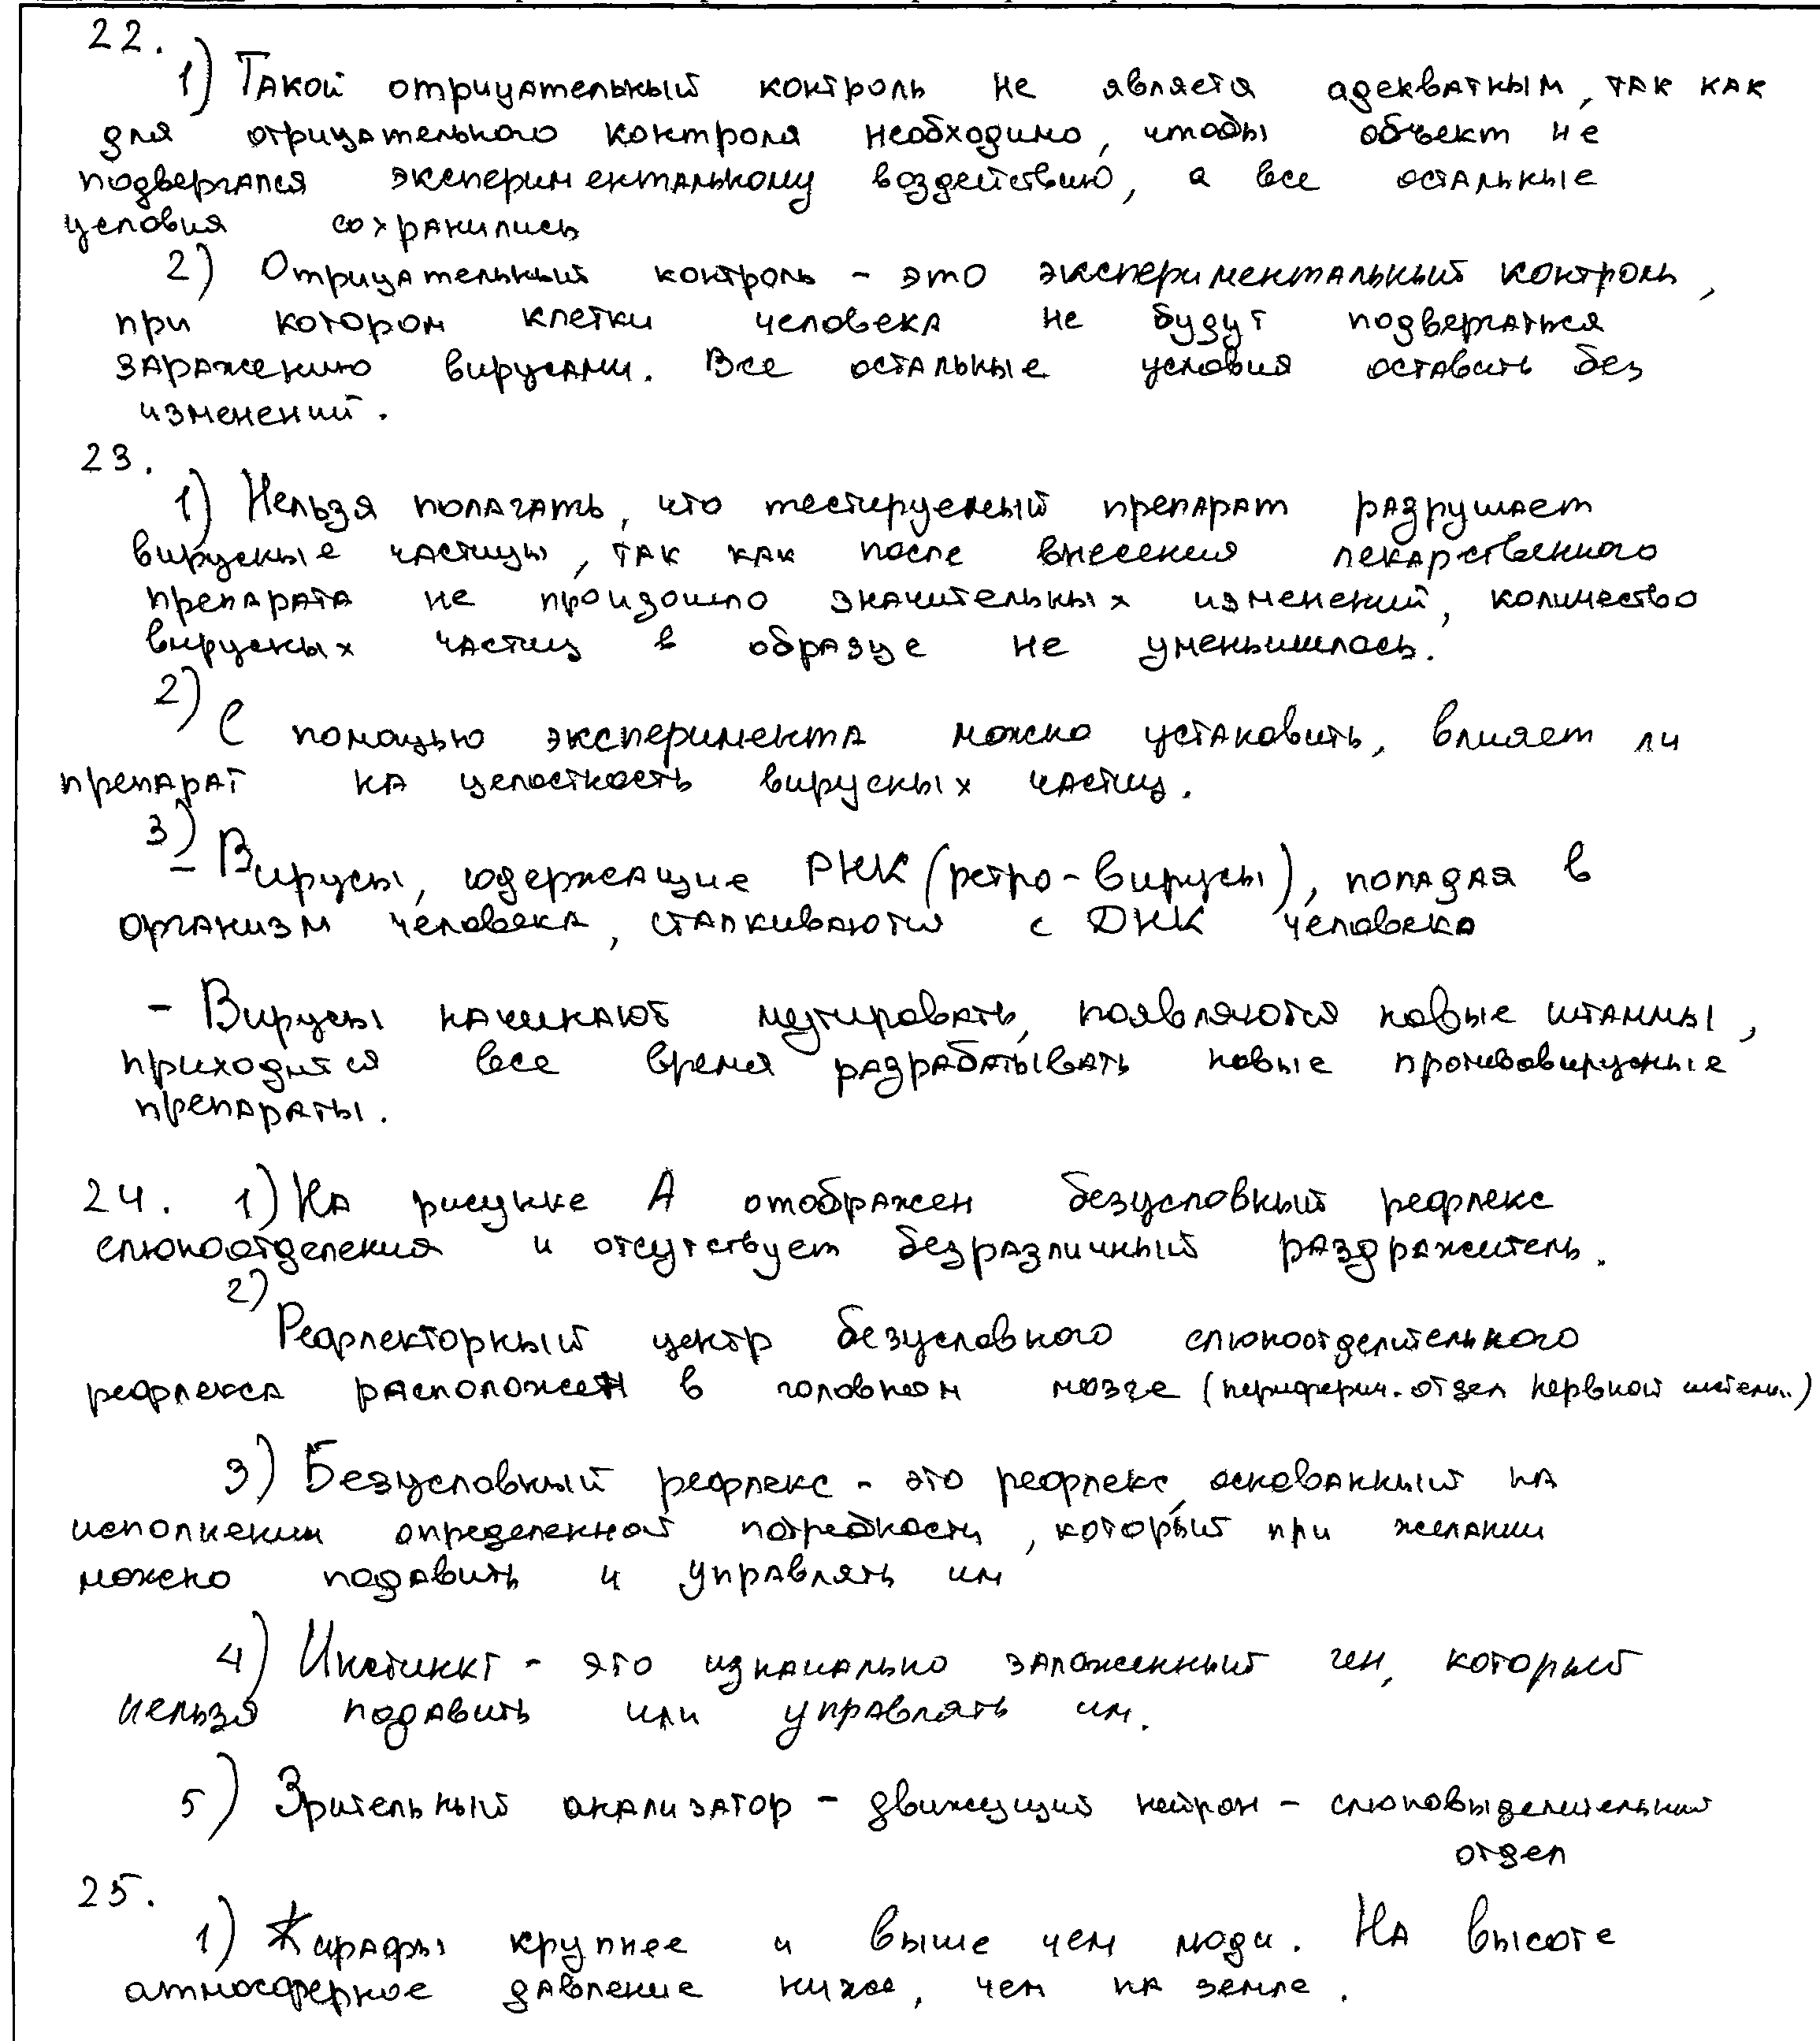 22.
1) Такой отрицательный контроль не является адекватным, так как
для отрицательного контроля необходимо, чтобы объект не
подвергался экспериментальному воздействию, а все остальные
условия сохранились
2) Отрицательный контроль - это экспериментальный контроль,
при котором клетки человека не будут подвергаться
заражению вирусами. Все остальные условия оставить без
изменений.
23.
1) Нельзя полагать, что тестируемый препарат разрушает
вирусные частицы, так как после внесения лекарственного
препарата не произошло значительных изменений, количество
вирусных частиц в образце не уменьшилось.
2) С помощью эксперимента можно установить, влияет ли
препарат на целостность вирусных частиц.
3)
- Вирусы, содержащие РНК (ретро-вирусы), попадая в
организм человека, сталкиваются с ДНК человека
- Вирусы начинают мутировать, появляются новые штаммы,
приходится все время разрабатывать новые противовирусные
препараты.
24. 1) На рисунке А отображен безусловный рефлекс
слюноотделения и отсутствует безразличный раздражитель.
2)
Рефлекторный центр безусловного слюноотделительного
рефлекса расположен в головном мозге (перифирич. отдел нервной систем..)
3) Безусловный рефлекс - это рефлекс, основанный на
исполнении определенной потребности, который при желании
можно подавить и управлять им
4) Инстинкт - это изначально заложенный ген, который
нельзя подавить или управлять им.
5) Зрительный анализатор - движущий нейрон - слюновыделительный
отдел
25.
1) Жирафы крупнее и выше чем люди. На высоте
атмосферное давление ниже, чем на земле.